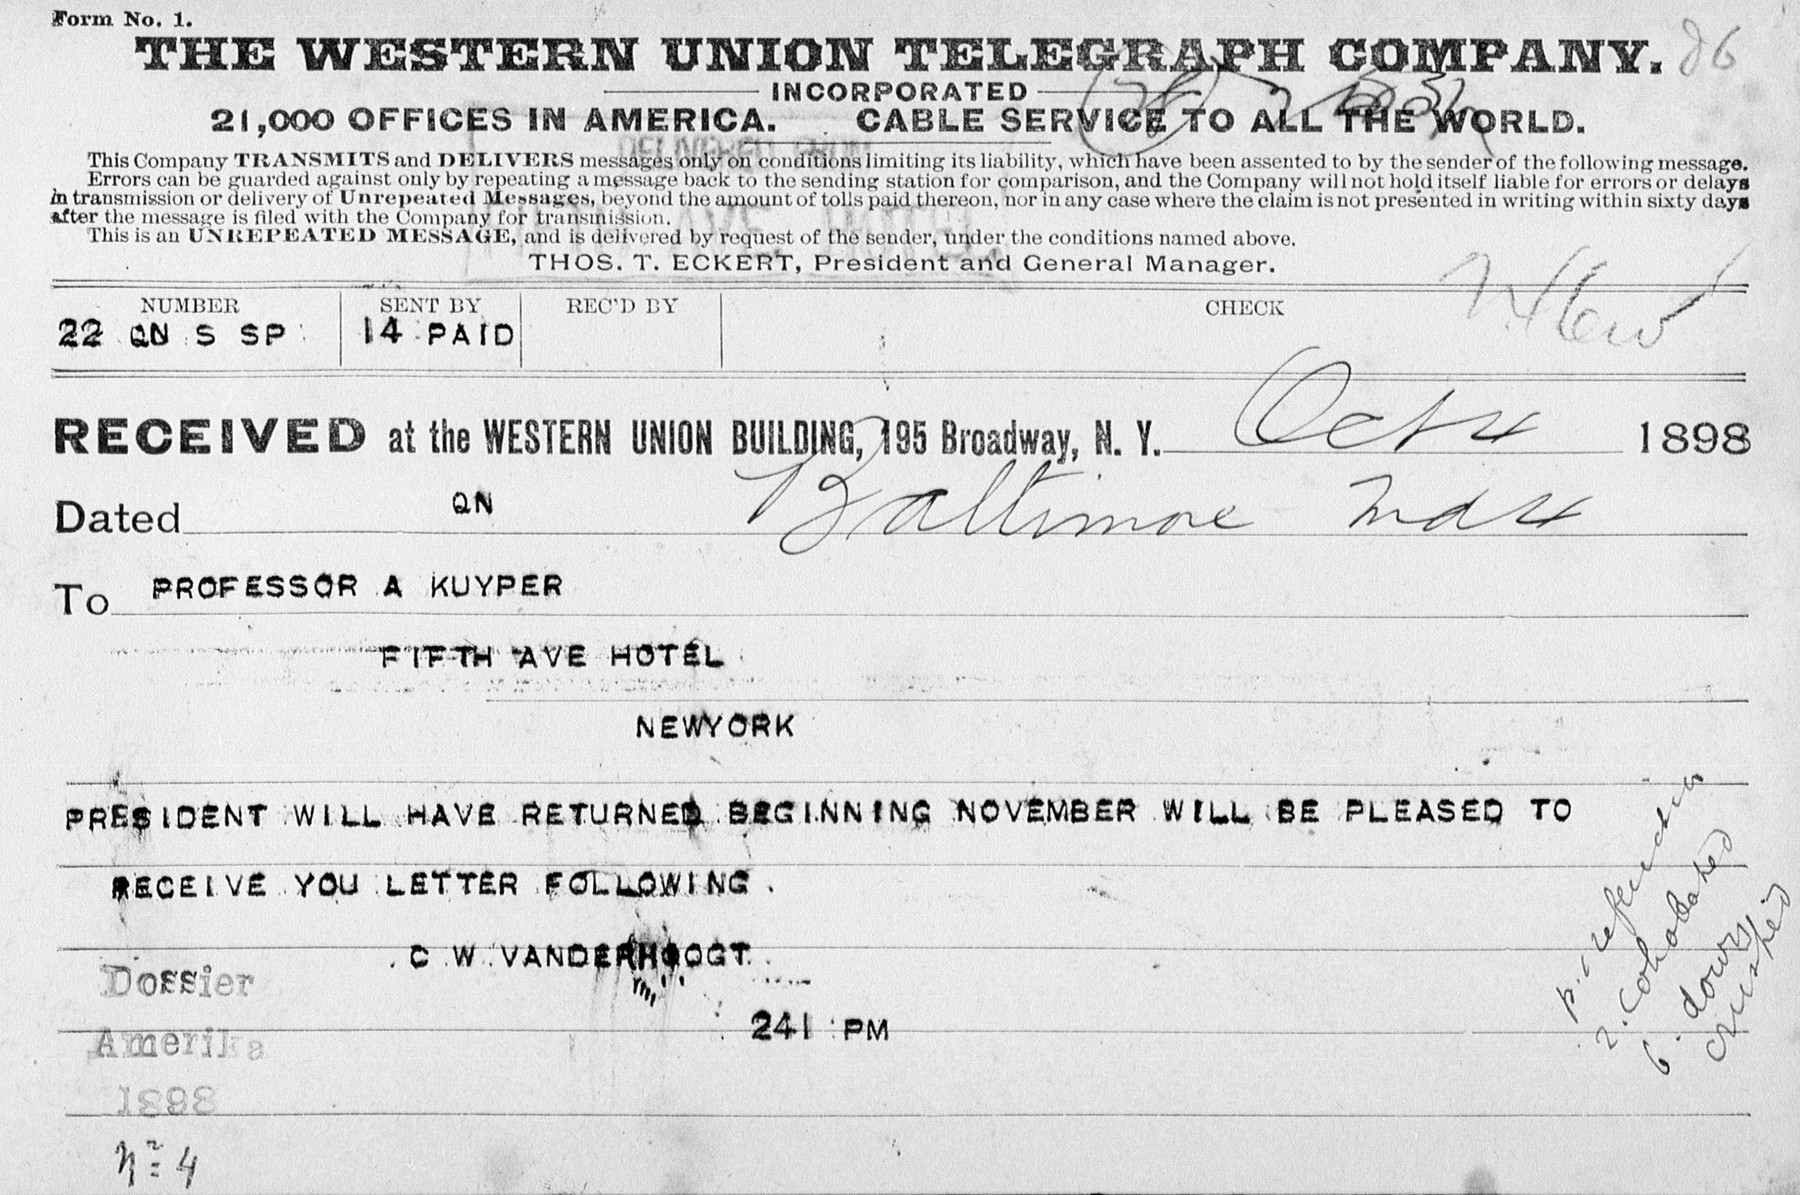 Form No. 1.
THE WESTERN UNION TELEGRAPH COMPANY. 86
INCORPORATED
21,000 OFFICES IN AMERICA. CABLE SERVICE TO ALL THE WORLD.
DELIVERED FROM
This Company TRANSMITS and DELIVERS messages only on conditions limiting its liability, which have been assented to by the sender of the following message.
Errors can be guarded against only by repeating a message back to the sending station for comparison, and the Company will not hold itself liable for errors or delays
in transmission or delivery of Unrepeated Messages, beyond the amount of tolls paid thereon, nor in any case where the claim is not presented in writing within sixty days
after the message is filed with the Company for transmission.
AVE. HOTEL
This is an UNREPEATED MESSAGE, and is delivered by request of the sender, under the conditions named above.
THOS. T. ECKERT, President and General Manager.
NUMBER SENT BY REC'D BY CHECK
22 QN S SP 14 PAID
RECEIVED at the WESTERN UNION BUILDING, 195 Broadway, N. Y. Oct 4 1898
Dated QN Baltimore Md 4
To PROFESSOR A KUYPER
FIFTH AVE HOTEL
NEWYORK
PRESIDENT WILL HAVE RETURNED BEGINNING NOVEMBER WILL BE PLEASED TO
RECEIVE YOU LETTER FOLLOWING .
C W VANDERHOOGT.
241 PM
Dossier
Amerika
1898
No 4